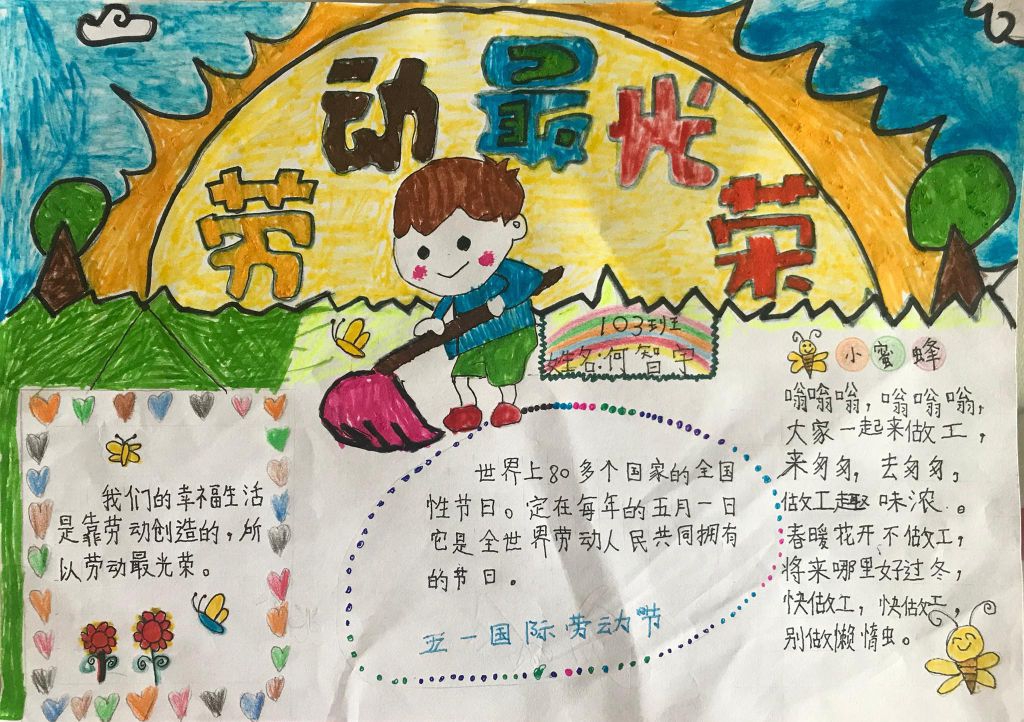 劳动最光荣
103班
姓名:何智宇
我们的幸福生活
是靠劳动创造的,所
以劳动最光荣。
世界上80多个国家的全国
性节日。定在每年的五月一日
它是全世界劳动人民共同拥有
的节日。
五一国际劳动节
小蜜蜂
嗡嗡嗡,嗡嗡嗡,
大家一起来做工,
来匆匆,去匆匆,
做工趣味浓。
春暖花开不做工,
将来哪里好过冬,
快做工,快做工,
别做懒惰虫。